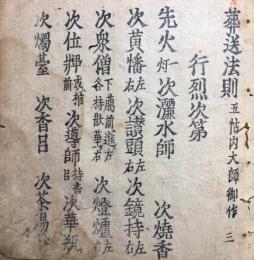 葬送法則 五帖内大師御作 三
行烈次第
先火灯 次灑水師 次燒香
次黄幡左右 次讃頭左右 次鏡持左右
次衆僧下﨟前進左右各持散華 次燈爐左右
次位牌 次導師持香呂 次華瓶
次燭臺 次香呂 次茶湯